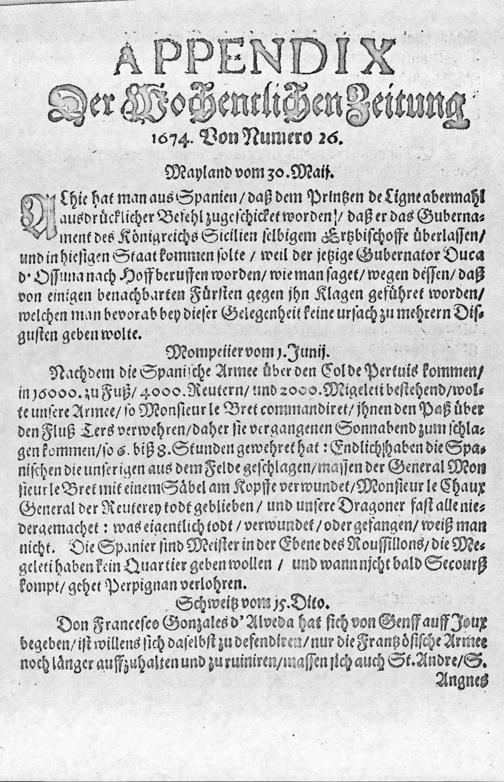 APPENDIX
Der Wochentlichen Zeitung
1674. Von Numero 26.
Mayland vom 30. Maij.
Alhie hat man aus Spanien / daß dem Printzen de Ligne abermahl
ausdrücklicher Befehl zugeschicket worden / daß er das Guberna-
ment des Königreichs Sicilien selbigem Ertzbischoffe überlassen /
und in hiesigen Staat kommen solte / weil der jetzige Gubernator Duca
d' Ossuna nach Hoff beruffen worden / wie man saget / wegen dessen / daß
von einigen benachbarten Fürsten gegen jhn Klagen geführet worden /
welchen man bevorab bey dieser Gelegenheit keine ursach zu mehrern Dis-
gusten geben wolte.
Mompelier vom 1. Junij.
Nachdem die Spanische Armee über den Col de Pertuis kommen /
in 16000. zu Fuß / 4000. Reutern / und 2000. Migeleti bestehend / wol-
te unsere Armee / so Monsieur le Bret commandiret / jhnen den Paß über
den Fluß Ters verwehren / daher sie vergangenen Sonnabend zum schla-
gen kommen / so 6. biß 8. Stunden gewehret hat : Endlich haben die Spa-
nischen die unserigen aus dem Felde geschlagen / massen der General Mon
sieur le Bret mit einem Säbel am Kopffe verwundet / Monsieur le Chaux
General der Reuterey todt geblieben / und unsere Dragoner fast alle nie-
dergemachet : was eigentlich todt / verwundet / oder gefangen / weiß man
nicht. Die Spanier sind Meister in der Ebene des Roussillons / die Me-
geleti haben kein Quartier geben wollen / und wann nicht bald Secourß
kompt / gehet Perpignan verlohren.
Schweitz vom 15. Dito.
Don Francesco Gonzales d' Alveda hat sich von Genff auff Joux
begeben / ist willens sich daselbst zu defendiren / nur die Französische Armee
noch länger auffzuhalten und zu ruiniren / massen sich auch St. Andre / S.
Angnes